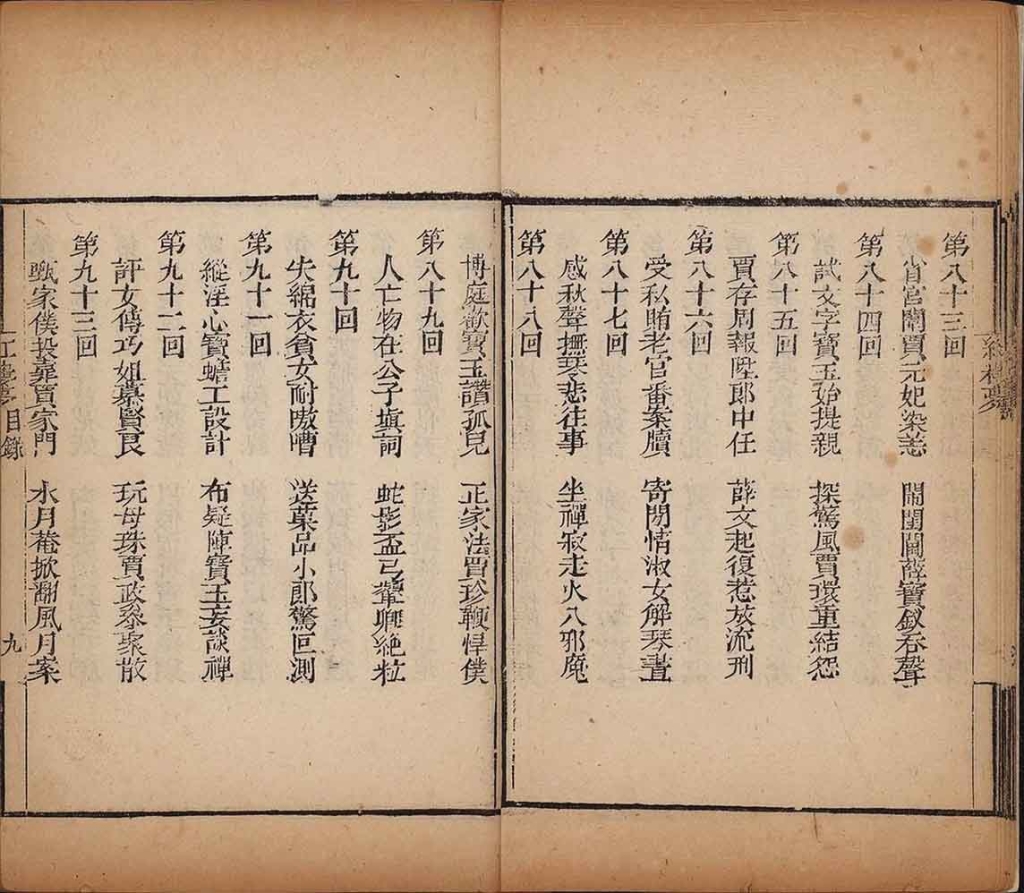 紅樓夢
第八十三回
省宮闈賈元妃染恙 鬧閨閫薛寶釵吞聲
第八十四回
試文字寶玉始提親 探驚風賈環重結怨
第八十五回
賈存周報陞郎中任 薛文起復惹放流刑
第八十六回
受私賄老官番案牘 寄閒情淑女解琴書
第八十七回
感秋聲撫琴悲往事 坐禪寂走火入邪魔
第八十八回
博庭歡寶玉讚孤兒 正家法賈珍鞭悍僕
第八十九回
人亡物在公子填詞 蛇影盃弓顰卿絕粒
第九十回
失綿衣貧女耐嗷嘈 送菓品小郎驚叵測
第九十一回
縱淫心寶蟾工設計 布疑陣寶玉妄談禪
第九十二回
評女傳巧姐慕賢良 玩母珠賈政參聚散
第九十三回
甄家僕投靠賈家門 水月菴掀翻風月案
目錄
九